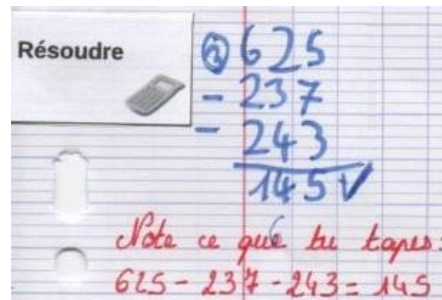 Résoudre
② 625
- 237
- 243
145 √
Note ce que tu tapes :
625 - 237 - 243 = 145